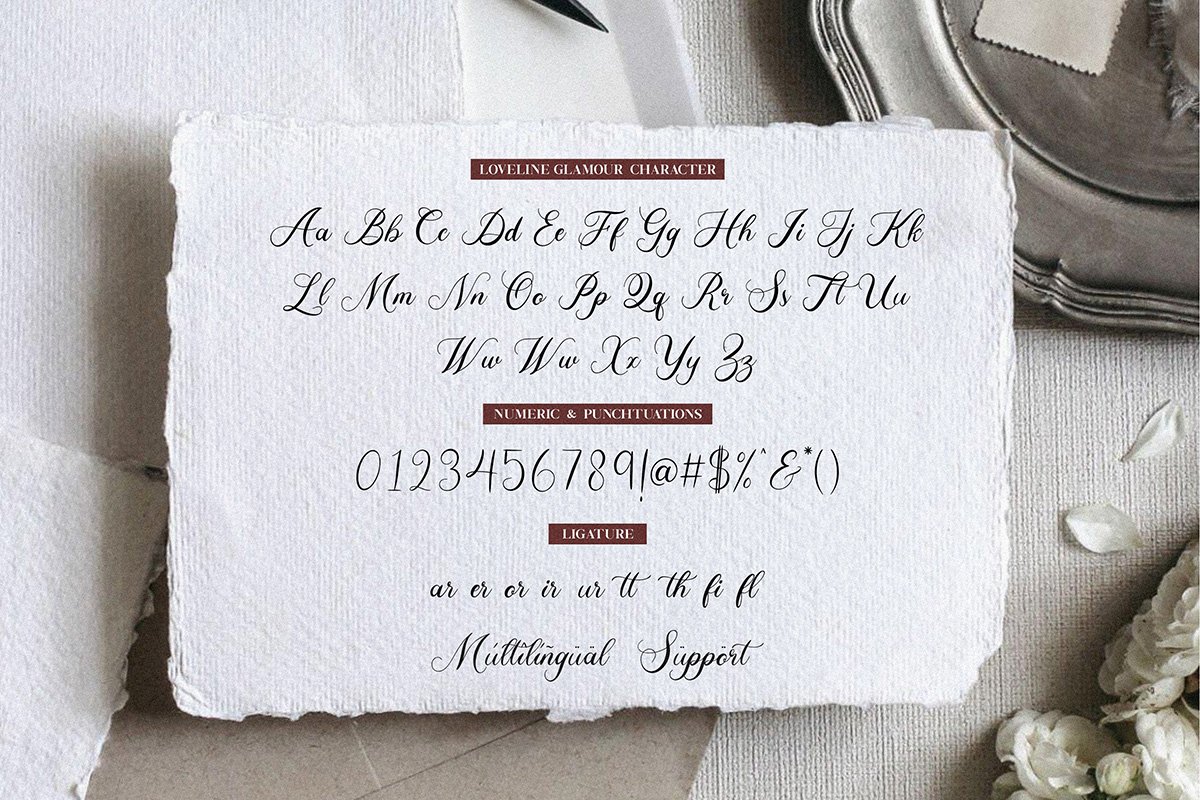 LOVELINE GLAMOUR CHARACTER
Aa Bb Cc Dd Ee Ff Gg Hh Ii Jj Kk
Ll Mm Nn Oo Pp Qq Rr Ss Tt Uu
Ww Ww Xx Yy Zz
NUMERIC & PUNCHTUATIONS
0123456789!@#$%^&*()
LIGATURE
ar er or ir ur tt th fi fl
Múltîlíñgüäl Süppört